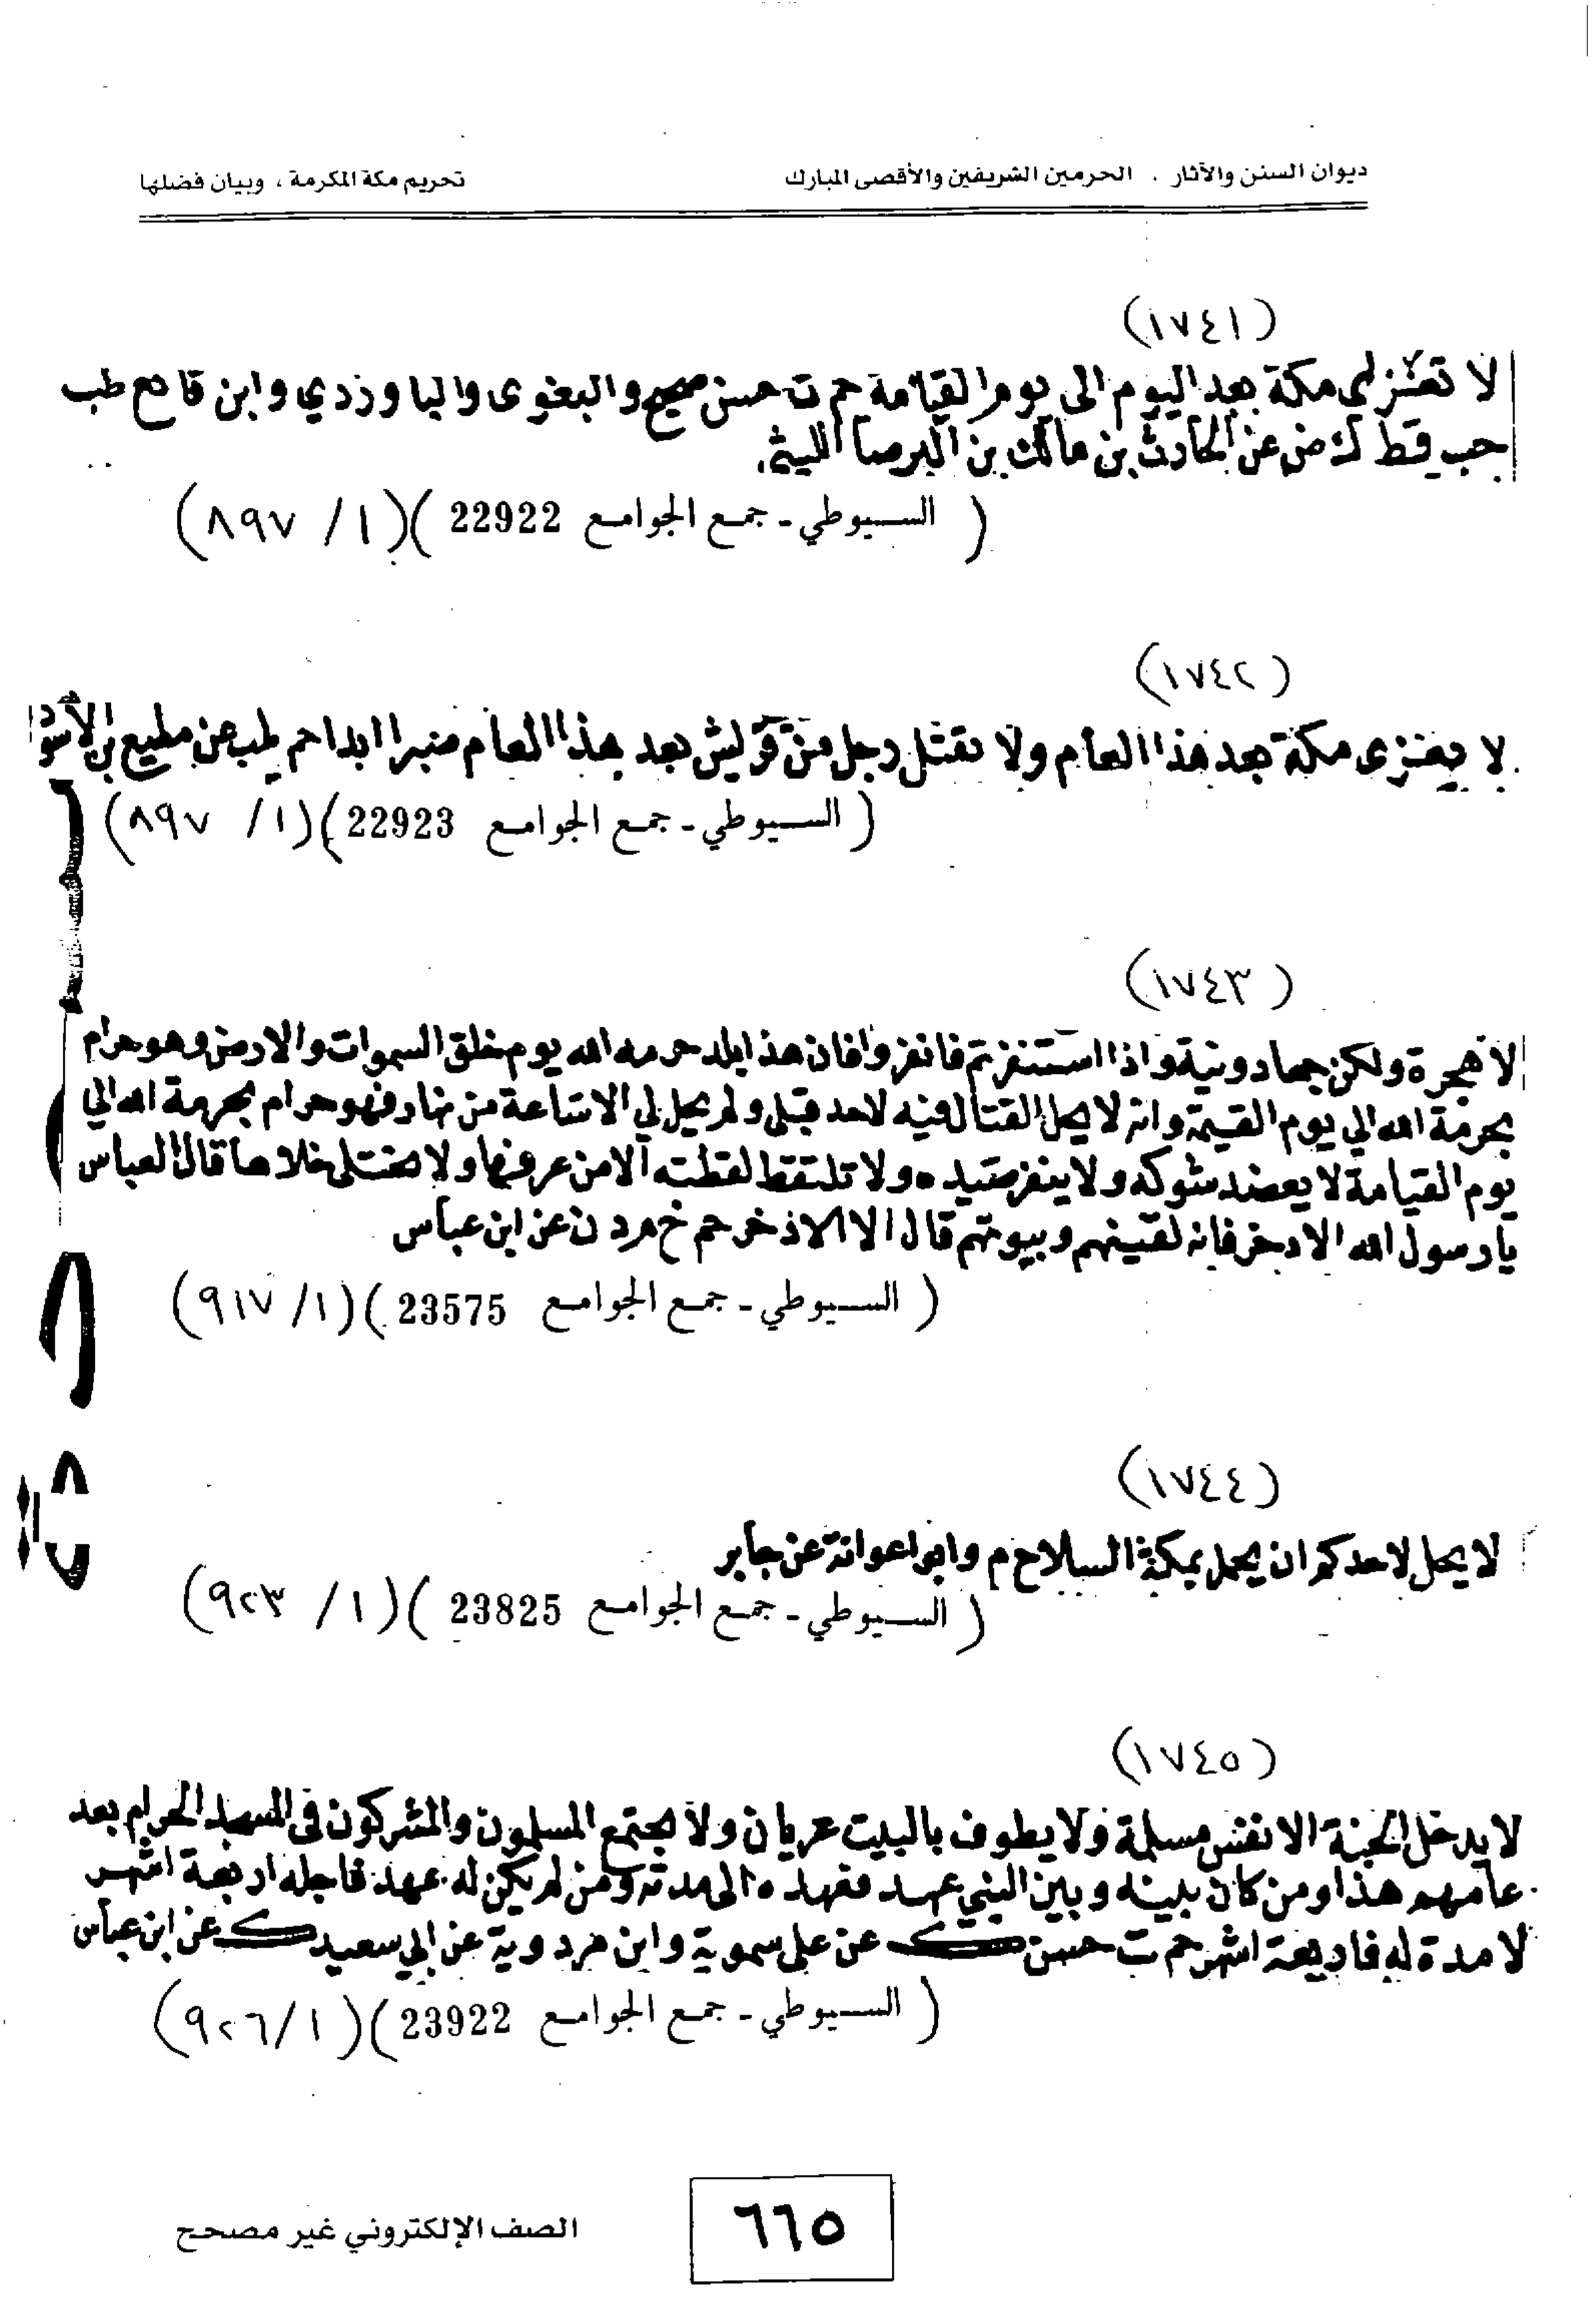 ديوان السنن والآثار . الحرمين الشريفين والأقصى المبارك
تحريم مكة المكرمة ، وبيان فضلها
(١٧٤١)
لا تغزى مكة بعد اليوم الى يوم القيامة حم ت حسن صحيح والبغوى والباوردي وابن قانع طب
حب قط ك ض عن الحارث بن مالك بن البرصا الليثى
( السيوطي - جمع الجوامع 22922 )(١ / ٨٩٧)
(١٧٤٢)
لا يغزى مكة بعد هذا العام ولا يقتل رجل من قريش بعد هذا العام صبرا ابدا حم طب عن مطيع بن الاسود
( السيوطي - جمع الجوامع 22923)(١ / ٨٩٧)
(١٧٤٣)
لا هجرة ولكن جهاد ونية واذا استنفرتم فانفروا فان هذا بلد حرمه الله يوم خلق السموات والارض وهو حرام
بحرمة الله الي يوم القيمة وانه لا يحل القتال فيه لاحد قبلى ولم يحل لي الا ساعة من نهار فهو حرام بحرمة الله الي
يوم القيامة لا يعضد شوكه ولا ينفر صيده ولا تلتقط لقطته الا من عرفها ولا يختلى خلاها قال العباس
يا رسول الله الا دخر فانه لقينهم وبيوتهم قال الا الاذخر حم خ م د ن عن ابن عباس
( السيوطي - جمع الجوامع 23575 )(١ / ٩١٧)
(١٧٤٤)
لا يحل لاحدكم ان يحمل بمكة السلاح م وابواعوانة عن جابر
( السيوطي - جمع الجوامع 23825 )(١ / ٩٢٣)
(١٧٤٥)
لا يدخل الجنة الا نفس مسلمة ولا يطوف بالبيت عريان ولا يجتمع المسلمون والمشركون فى المسجد الحرام بعد
عامهم هذا ومن كان بينه وبين النبي عهد فعهده الى مدته ومن لم يكن له عهد فاجله اربعة اشهر
لا مدة له فاربعة اشهر حم ت حسن ك عن على سموية وابن مردوية عن ابي سعيد ك عن ابن عباس
( السيوطي - جمع الجوامع 23922 )(١ /٩٢٦)
٦٦٥
الصف الإلكتروني غير مصحح